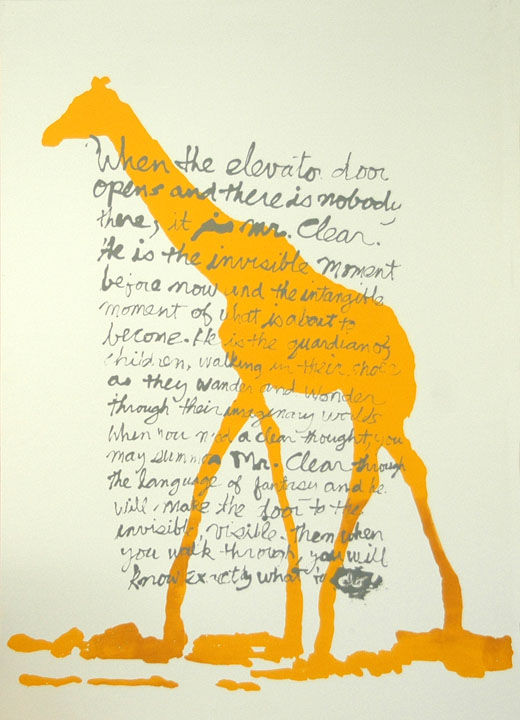 When the elevator door
opens and there is nobody
there, it is Mr. Clear.
He is the invisible moment
before now and the intangible
moment of what is about to
become. He is the guardian of
children, walking in their shoes
as they wander and wonder
through their imaginary worlds
When you need a clear thought, you
may summon Mr. Clear through
the language of fantasy and he
will make the door to the
invisible, visible. Then when
you walk through, you will
know exactly what to